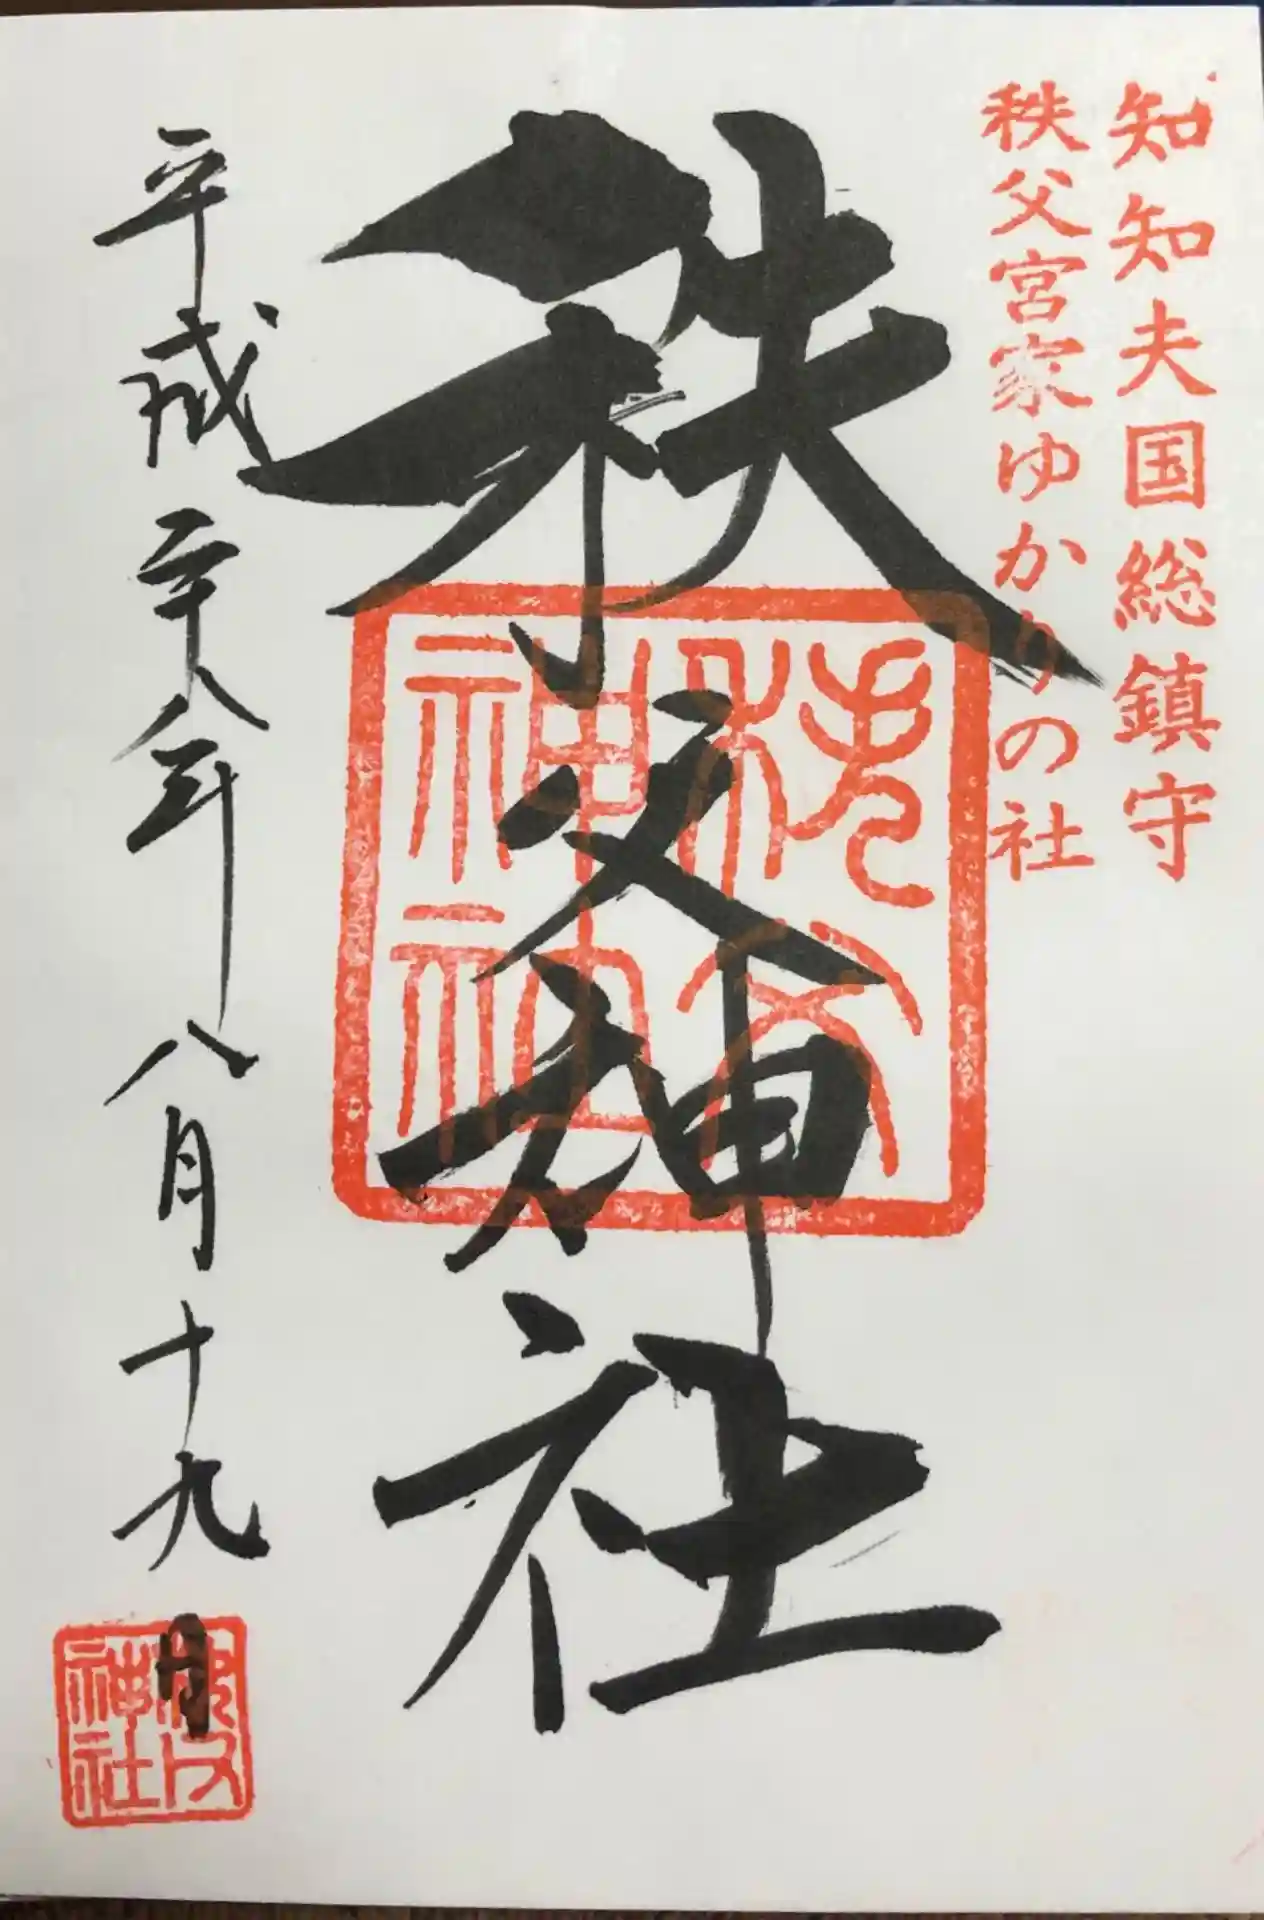 知知夫国総鎮守
秩父宮家ゆかりの社
秩父神社
秩父
神社
平成二十八年八月十九日
秩父
神社